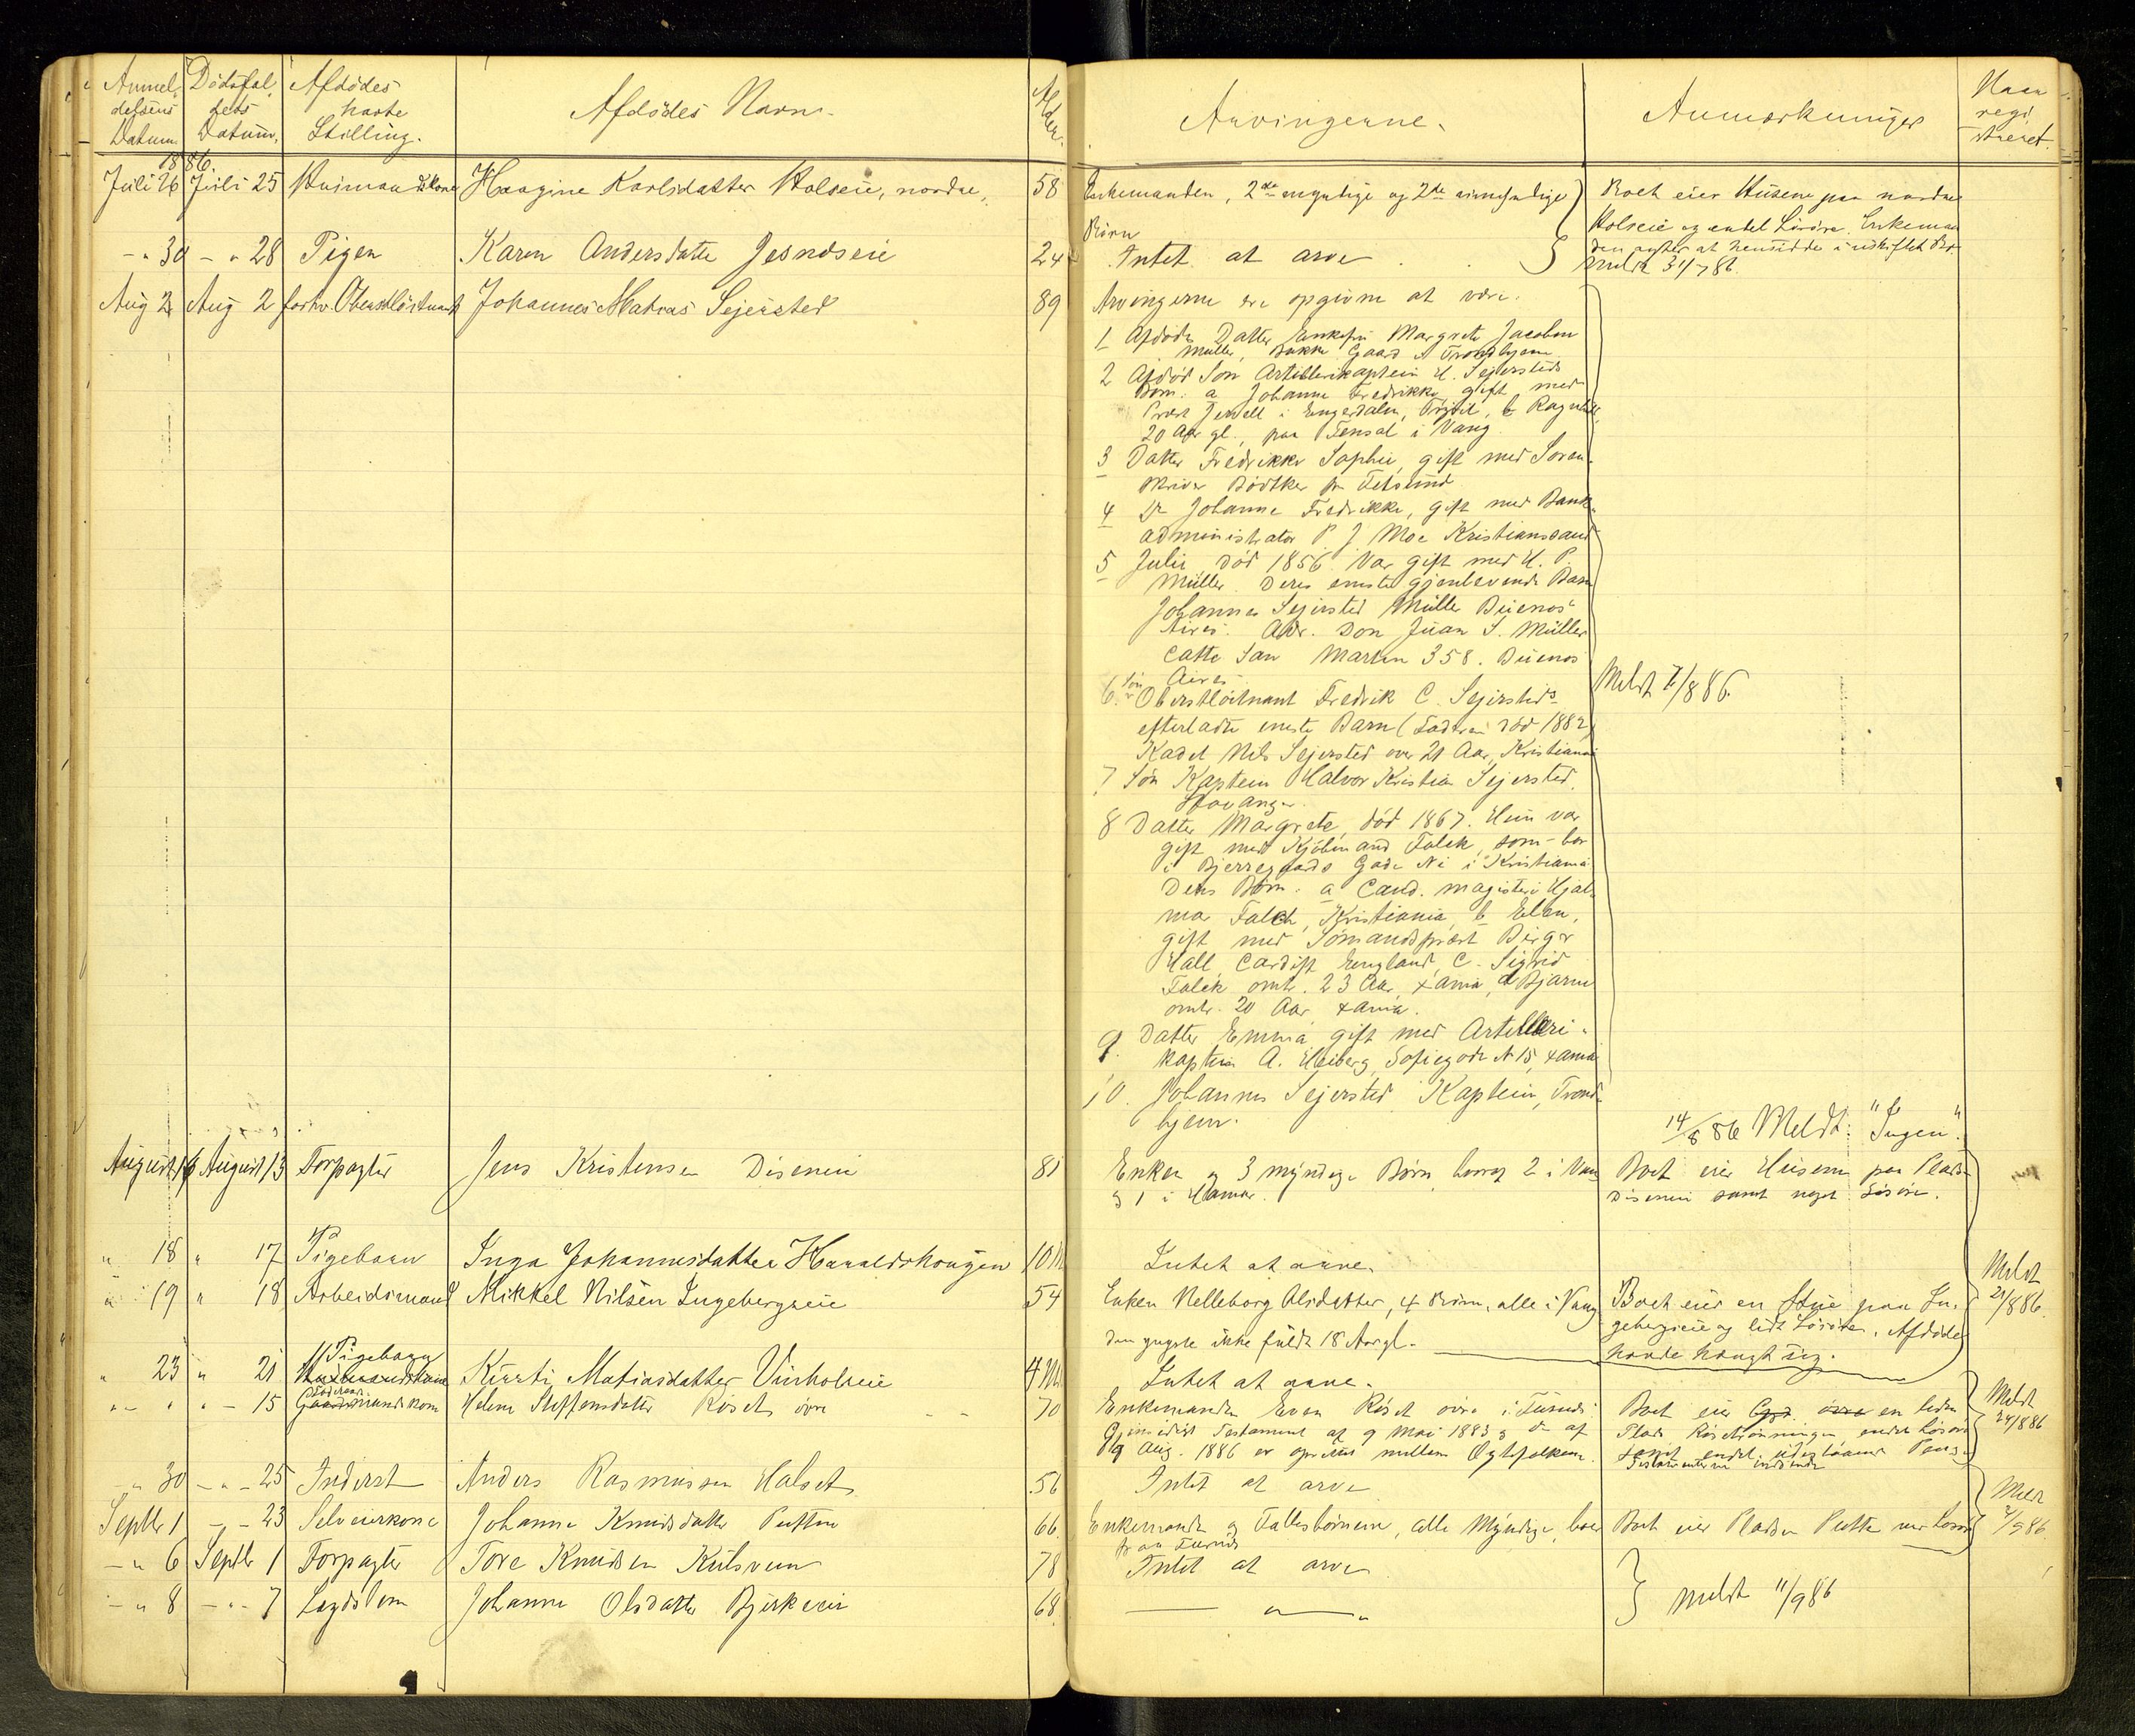 Anmel-
delsens
Datum.
Dödsfal-
dets
Datum.
Afdödes
havte
Stilling.
Afdödes Navn.
Alder.
Arvingerne.
Anmærkninger
Naar
regi
streret.
1886.
Juli 26 Juli 25 Husmandskone Haagine Karlsdatter Holseie, nordre, 58 Enkemanden, 2de umyndige og 2de myndige
Börn
Boet eier Husene paa nordre
Holseie og endel Lösöre. Enkeman
den agter at hensidde i uskiftet Bo
Meldt 31/7 86.
-„ 30 -„ 28 Pigen Karen Andersdatter Jesnæseie 24 Intet at arve
Aug 2 Aug 2 forhv. Oberstlöitnant Johannes Matias Sejersted 89 Arvingerne ere opgivne at være:
1 Afdödes Datter Enkefru Margrete Jacobine
Müller, Bakke Gaard i Trondhjem
2 Afdöd Sön Artillerikaptein H. Sejersteds
Börn: a Johanne Fredrikke, gift med
Præst Jervell i Engerdalen, Trysil, b Ragnhild
20 Aar gl., paa Fensal i Vang
3 Datter Fredrikke Sophie, gift med Soren-
skriver Bödtker fr Fetsund
4 Dr Johanne Fredrikke, gift med Bank-
administrator P J Moe Kristianssand
5 Julie, död 1856. Var gift med H. P.
Müller. Deres eneste gjenlevende Barn
Johannes Sejersted Müller Buenos
Aires. Adr. Don Juan S. Müller
Calle San Martin 358. Buenos
Aires
6. Sön Oberstlöitnant Fredrik C. Sejersteds
efterladte eneste Barn (Faderen död 1882)
Kadet Nils Sejersted over 21 Aar, Kristiania
Meldt 7/8 86
7 Sön Kaptein Halvor Kristian Sejersted,
Stavanger
8 Datter Margrete, död 1867. Hun var
gift med Kjöbmand Falck, som bor
i Bjerregaards Gade No i Kristiania
Deres Börn: a Cand. magisteri Hjal-
mar Falch, Kristiania, b Elen,
gift med Sömandspræst Birger
Hall, Cardiff England, c. Sigrid
Falck omtr. 23 Aar, Xania, d Bjarne
omtr. 20 Aar Xania.
9. Datter Emma gift med Artilleri-
kaptein A. Heiberg, Sofiegade N 15, Xania
10. Johannes Sejersted Kaptein, Trond-
hjem.
14/8 86 Meldt: "Ingen".
August 14 August 13 Forpagter Jens Kristensen Disenei 81 Enken og 3 myndige Börn, hvoraf 2 i Vang
og 1 i Hamar.
Boet eier Husene paa Pladsen
Disenei samt noget Lösöre.
„ 18 „ 17 Pigebarn Inga Johannesdatter Haraldshaugen 10 M Intet at arve.
„ 19 „ 18 Arbeidsmand Mikkel Nilsen Ingebergseie 54 Enken Nelleborg Olsdatter, 4 Börn, alle i Vang
den yngste ikke fuldt 18 Aar gl.
Boet eier en Stue paa In-
gebergseie og lidt Lösöre. Afdöde
havde hængt sig.
Meldt
21/8 86.
„ 23 „ 21 Pigebarn Kirsti Matiasdatter Vinholseie 4 M. Intet at arve.
„ - „ „ - 15 Föderaads Gaardmandskone Helene Steffensdatter Röset övre 70 Enkemanden Even Röset övre i Furnes
Gjensidigt Testament af 9 Mai 1883 og do af
9 Aug. 1886 er oprettet mellem Ægtefolkene.
Boet eier en liden
Plads Rösetrönningen, endel Lösöre
samt endel udestaaende Penge
Testamenterne indsendte
Meldt
24/8 86
-„ 30 -„- 25 Inderst Anders Rasmussen Halset 56 Intet at arve
Septbr 1 -„- 23 Selveierkone Johanne Knudsdatter Putten 66 Enkemanden og Fællesbörnene, alle Myndige, boer
paa Furnes
Boet eier Pladsen Putten med Lösöre
Meldt
2/9 86.
-„ 6 Septbr 1 Forpagter Tore Knudsen Kulsveen 78 Intet at arve
-„ 8 -„- 7 Lægdslem Johanne Olsdatter Bjerkeeie 68. — „ — „
Meldt 11/9 86